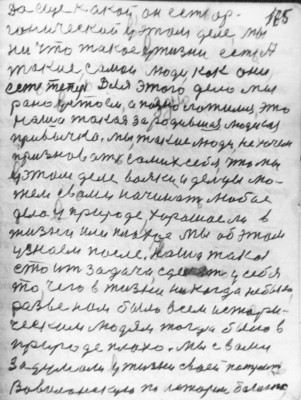 175
Да еще какой, он есть ор-
ганической в этом деле мы
ни что такое в жизни есть
такие, самои люди как они
есть теперь Для этого дела мы
рано встаем, а поздно ложимся, это
наша такая зародившая людская
привычка. Мы такие люди, не хочем
признавать самих себя, что мы
в этом деле вояки и дельцы мо-
жем с вами начинать любое
дело в природе хорошое ли в
жизни или плохое мы об этом
узнаем после, наша такая
стоит задача сделать у себя
то чего в жизни никогда не было
разве нам было всем истори-
ческим людям тогда было в
природе плохо. Мы с вами
задумали в жизни своей
Вавилонскую по истории